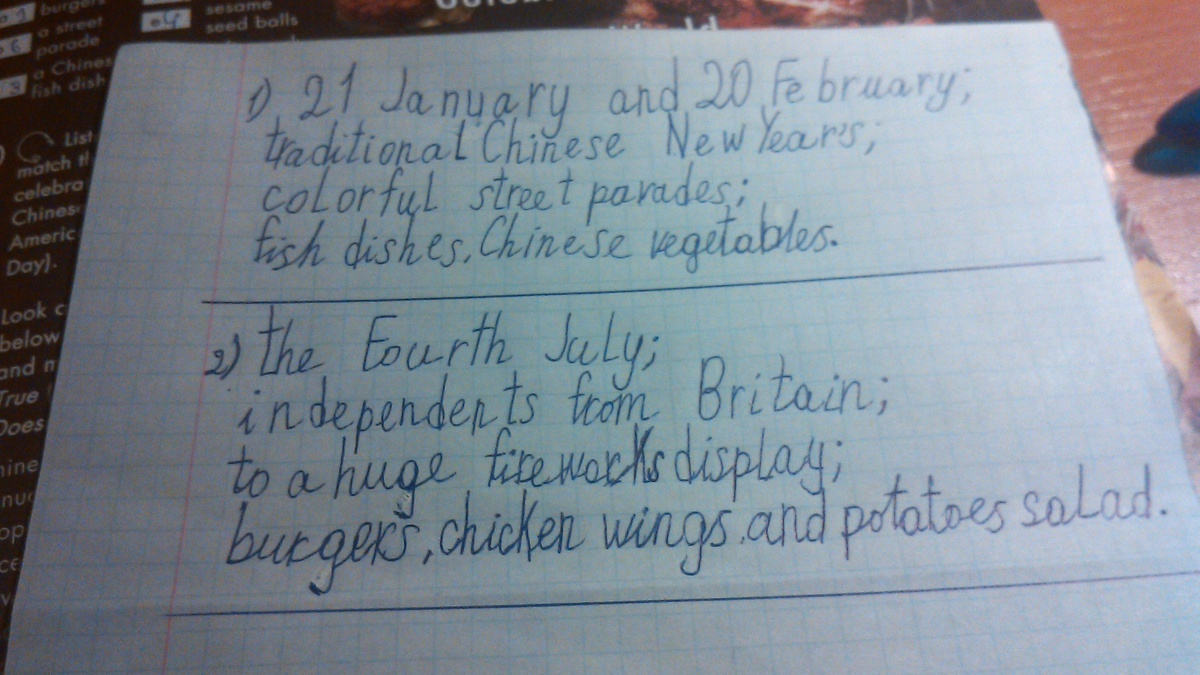 burgers
a street
parade
a Chines
fish dish
sesame
seed balls
List
match t
celebra
Chines
Americ
Day).
Look c
below
and m
True
Does
1) 21 January and 20 February;
traditional Chinese New Year's;
colorful street parades;
fish dishes, Chinese vegetables.
2) the Fourth July;
independents from Britain;
to a huge fireworks display;
burgers, chicken wings, and potatoes salad.